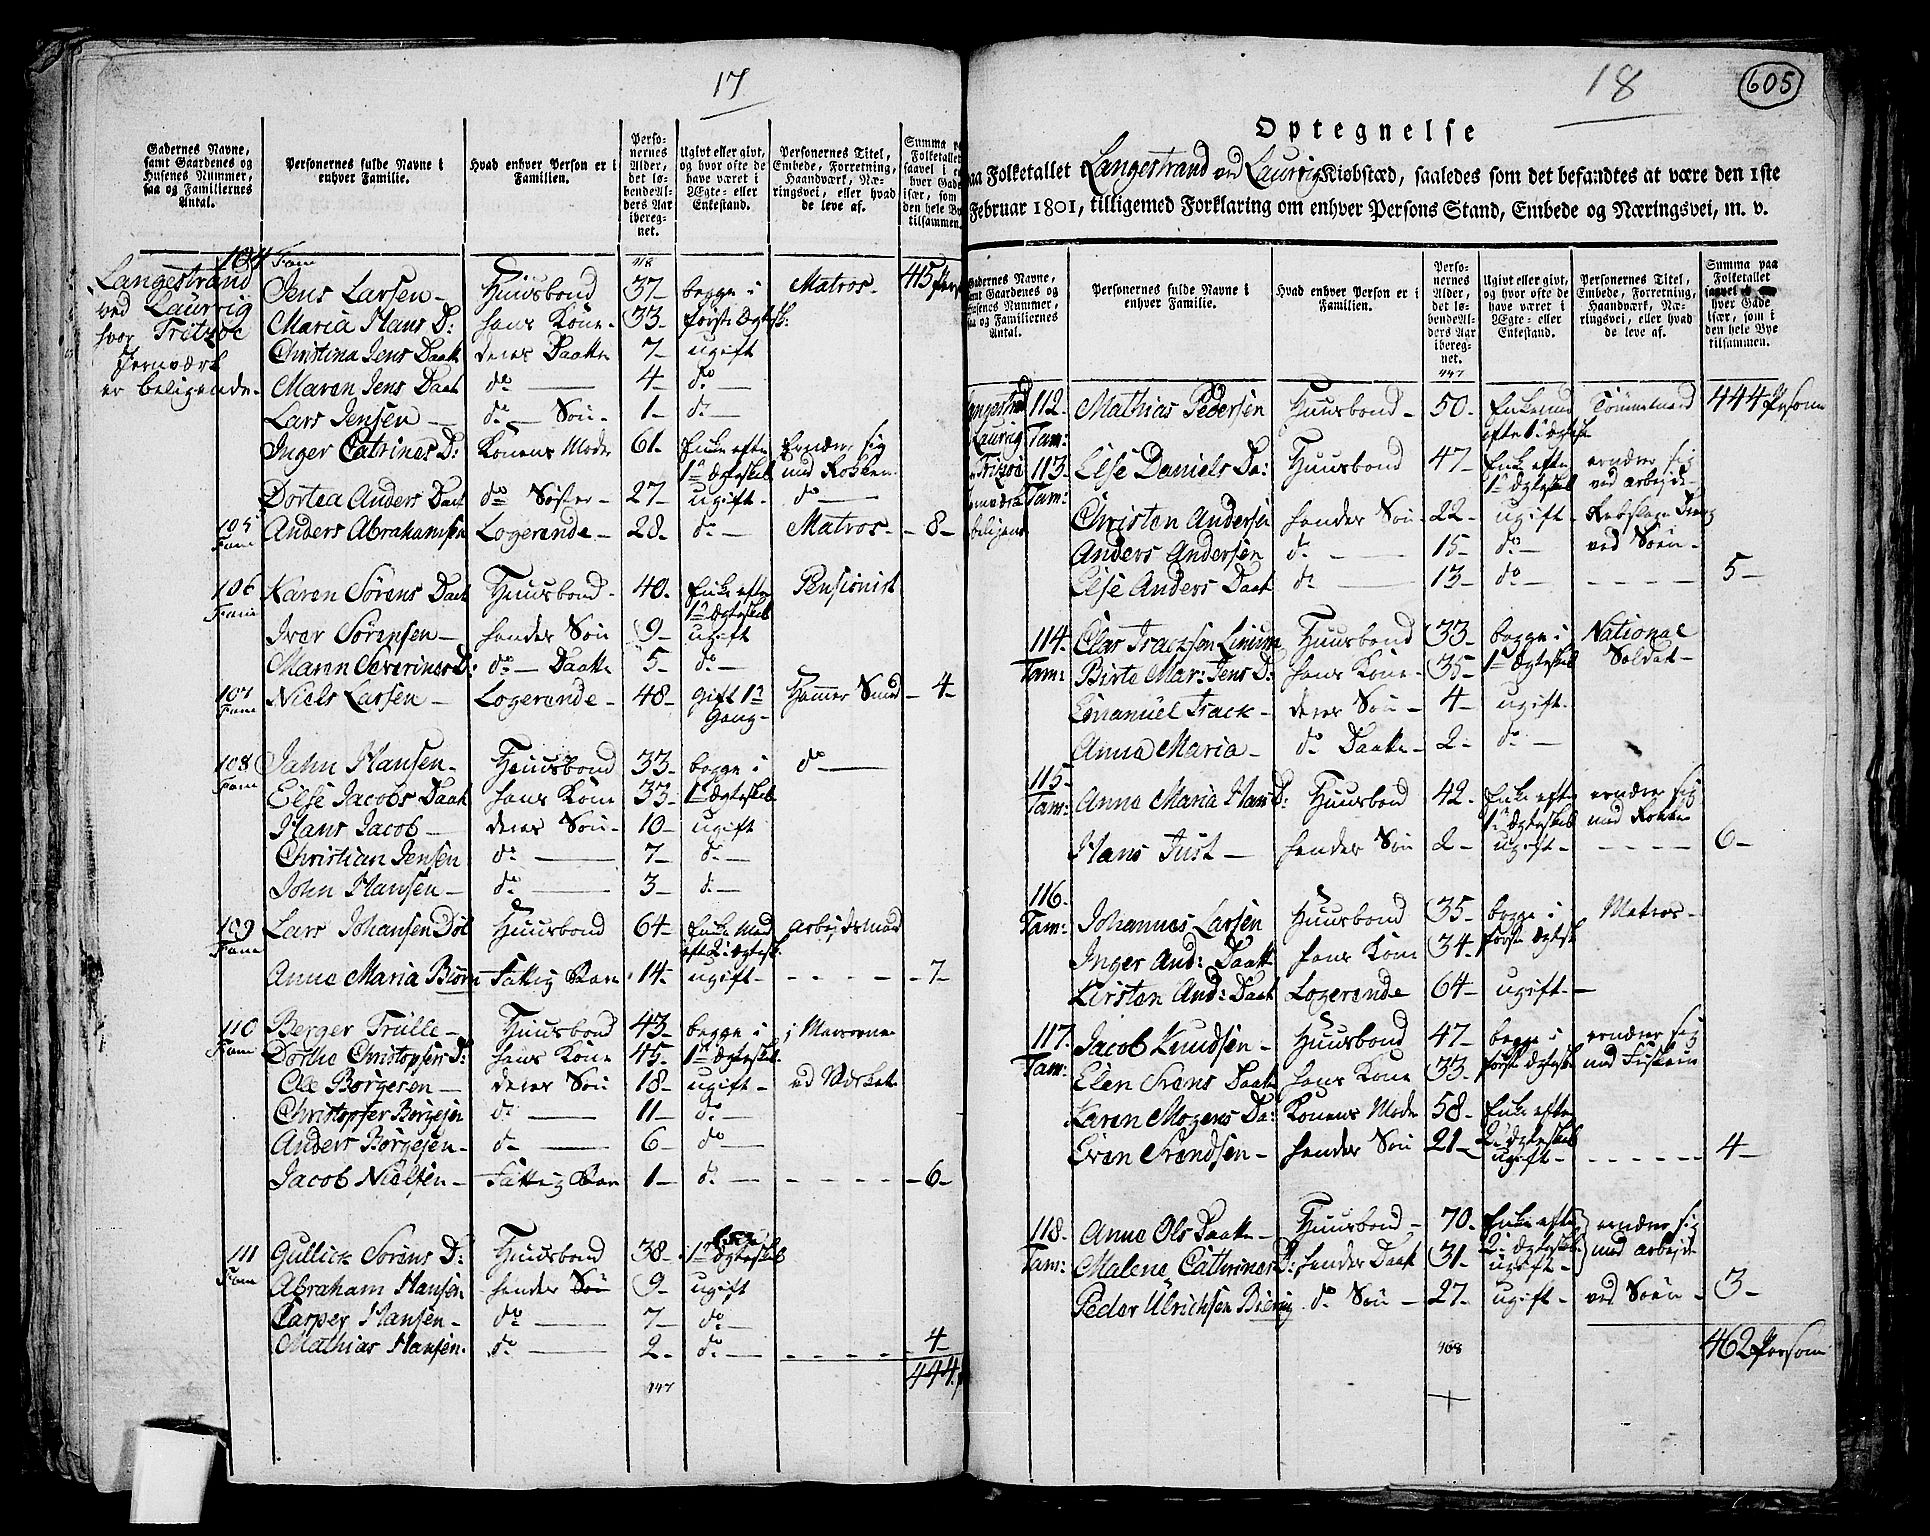 17
Gadernes Navne, samt Gaardenes og Husenes Nummer, saa og Familiernes Antal.
Personernes fulde Navne i enhver Familie.
Hvad enhver Person er i Familien.
Personernes Alder, det løbende Alders Aar iberegnet.
Ugivt eller givt, og hvor ofte de have været i Ægte- eller Enkestand.
Personernes Titel, Embede, Forretning, Haandværk, Næringsvei, eller hvad de leve af.
Langestrand
ved Laurvig
hvor Fritzøe
Jernværk
er beligende
104 Fam
Jens Larsen Huusbond 37 begge i Matros 415 Pers
Maria Hans D: hans Kone 33 første Ægtesk:
Christina Jens Daatt deres Daatte 7 ugift
Maren Jens Daat do 4 do
Lars Jensen do Søn 1 do
Inger Catrines D: Konens Mode 61 Enke efte Ernærer sig
1te Ægteskab med Rokken
Dortea Anders Daat do Søster 27 ugift do
105 Fam Anders Abrahamsen Logerende 28 do Matros 8
106 Fam Karen Sørens Daat Huusbond 40 Enke efte Pensionist
1te Ægteskab
Iver Sørensen hendes Søn 9 ugift
Maren Severines D: do Daatte 5 do
107 Fam Niels Larsen Logerende 48 gift 1te Hammer Smed 4
Gang
108 Fam Jahn Hansen Huusbond 33 begge i do
Else Jacobs Daat hans Kone 33 1te Ægteskab
Hans Jacob deres Søn 10 ugift
Christian Jensen do 7 do
John Hansen do 3 do
109 Fam Lars Johansen Døl Huusbond 64 Enke Mand Arbejdsmand
efte 2 Ægtesk:
Anne Maria Biørn Fattig Barn 14 ugift 7
110 Fam Berger Trulle Huusbond 43 begge i i Masovne
Dorthe Christophers D: hans Kone 45 1te Ægteskab
Ole Børgesen deres Søn 18 ugift ved Værket
Christopher Børgesen do 11 do
Anders Børgesen do 6 do
Jacob Nielsen Fattig Barn 1 do 6
111 Fam Gullick Sørens D: Huusbond 38 1te Ægteskab
Abraham Hansen hendes Søn 9 ugift
Casper Hansen do 7 do
Mathias Hansen do 2 do 4
447
444
18
605
Optegnelse
paa Folketallet i Langestrand ved Laurvig Kiøbstæd, saaledes som det befandtes at være den 1ste
Februar 1801, tilligemed Forklaring om enhver Persons Stand, Embede og Næringsvei, m. v.
Personernes fulde Navne i enhver Familie.
Hvad enhver Person er i Familien.
Personernes Alder, det løbende Alders Aar iberegnet.
Ugivt eller givt, og hvor ofte de have været i Ægte- eller Enkestand.
Personernes Titel, Embede, Forretning, Haandværk, Næringsvei, eller hvad de leve af.
Summa paa Folketallet saavel i enhver Gade især, som i den hele Bye tilsammen.
447
112 Fam: Mathias Pedersen Huusbond 50 Enkemd Tømmermand 444 Person
efte 1 Ægtesk
113 Fam: Else Daniels Da: Huusbond 47 Enke efte ernærer sig
1te Ægteskab ved arbejde
Christen Andersen hendes Søn 22 ugift
Anders Andersen do 15 do ved Søen
Else Anders Daat do 13 do 5
114 Fam: Huusbond 33 begge i National
Birte Mar: Jens D: hans Kone 35 1te Ægteskab Soldat
Emanuel deres Søn 4 ugift
Anna Maria do Daatte 2 do
115 Fam: Anne Maria Hans D: Huusbond 42 Enke efte ernærer sig
1te Ægteskab med Rokken
Hans Just hendes Søn 2 ugift 6
116 Fam: Johannes Larsen Huusbond 35 begge i Matros
Inger And: Daatt hans Kone 34 første Ægtesk
Kirsten And: Daat Logerende 64 ugift
117 Fam: Jacob Knudsen Huusbond 47 begge i ernærer sig
Elen Svens Daatt hans Kone 33 første Ægteskab med Fiskerie
Karen Mogens Da: Konens Mode 58 Enke efte
2 Ægteskab
Even Svendsen hendes Søn 21 ugift 4
118 Fam: Anne Ols Daatte Huusbond 70 Enke efte ernærer sig
2 Ægteskab med arbejde
Malene Cathrines D: hendes Daat 31 ugift
Peder Ulrichsen Biering do Søn 27 ugift ved Søen 3
468
462 Person